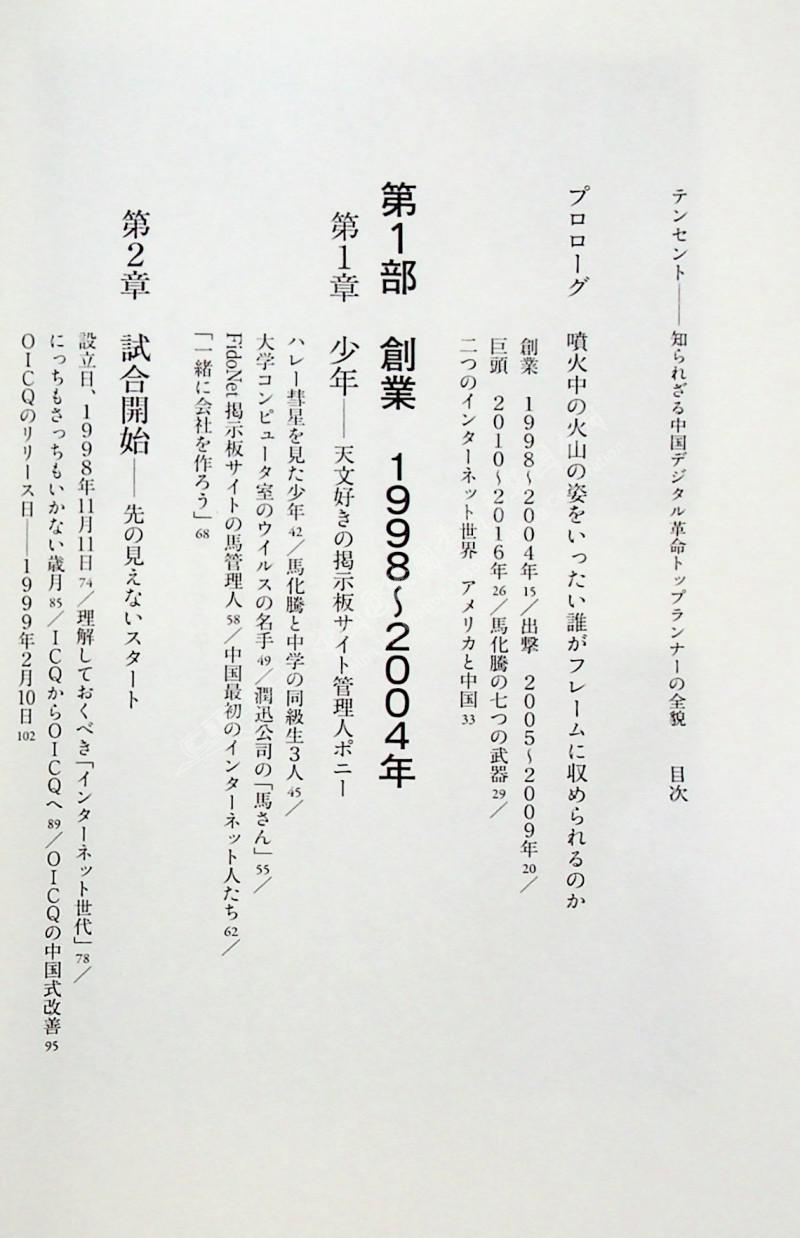 テンセント——知られざる中国デジタル革命トップランナーの全貌　目次
プロローグ　噴火中の火山の姿をいったい誰がフレームに収められるのか
創業　1998〜2004年 15／出撃　2005〜2009年 20／
巨頭　2010〜2016年 26／馬化騰の七つの武器 29／
二つのインターネット世界　アメリカと中国 33
第1部　創業　1998〜2004年
第1章　少年——天文好きの掲示板サイト管理人ポニー
ハレー彗星を見た少年 42／馬化騰と中学の同級生3人 45／
大学コンピュータ室のウイルスの名手 49／潤迅公司の「馬さん」 55／
FidoNet 掲示板サイトの馬管理人 58／中国最初のインターネット人たち 62／
「一緒に会社を作ろう」 68
第2章　試合開始——先の見えないスタート
設立日、1998年11月11日 74／理解しておくべき「インターネット世代」 78／
にっちもさっちもいかない歳月 85／ICQからOICQへ 89／OICQの中国式改善 95
OICQのリリース日——1999年2月10日 102